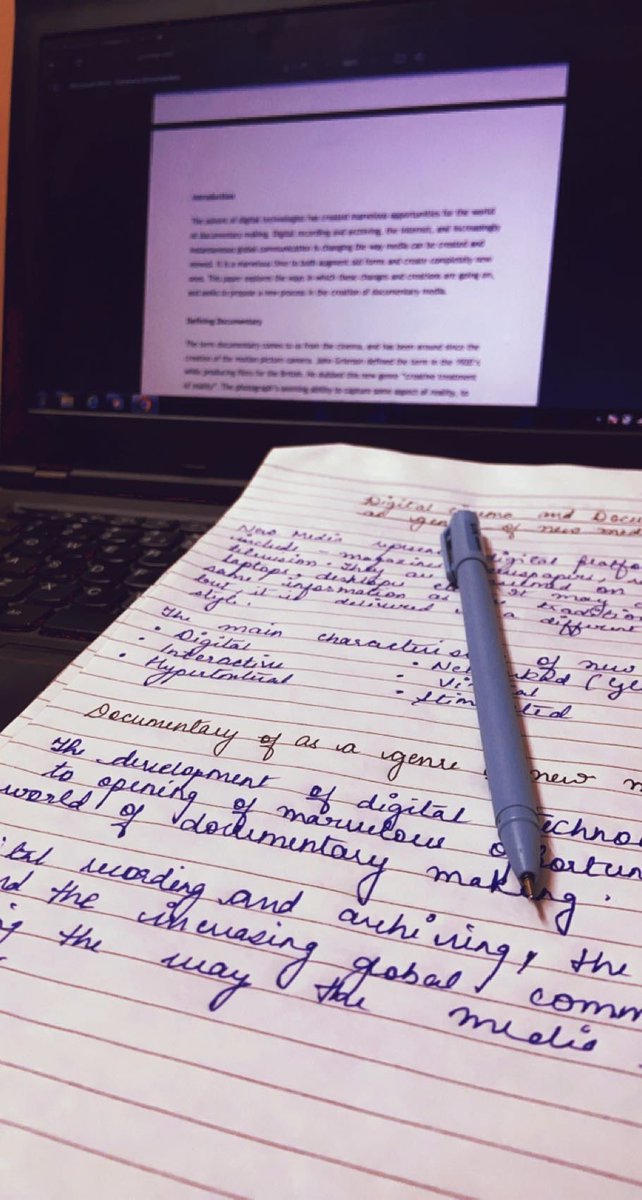 Introduction
The advent of digital technologies has created marvelous opportunities for the world
of documentary making. Digital recording and archiving, the internet, and increasingly
instantaneous global communication is changing the way media can be created and
viewed. It is a marvelous time to both augment old forms and create completely new
ones. This paper explores the ways in which these changes and creations are going on,
and seeks to propose a new process in the creation of documentary media.
Defining Documentary
The term documentary comes to us from the cinema, and has been around since the
creation of the motion picture camera. John Grierson defined the term in the 1920's
while producing films for the British. He dubbed this new genre "creative treatment
of reality". The photograph's seeming ability to capture some aspect of reality, to
Digital Cinema and Docu
as genre of new med
New Media digital platfo
include - magazine newspapers,
television. They are on
laptops, desktops It may
same information as tradition
but it is delivered a different
style.
The main characteris of new
• Digital
• Interactive
• Hypertextual
• Net ked (ge
• Vi al
• Stim ted
Documentary of as a genre new m
The development of digital echnol
to opening of marvelous o ortun
world of documentary making.
ital recording and archiving, the
nd the increasing global comm
ng the way the media